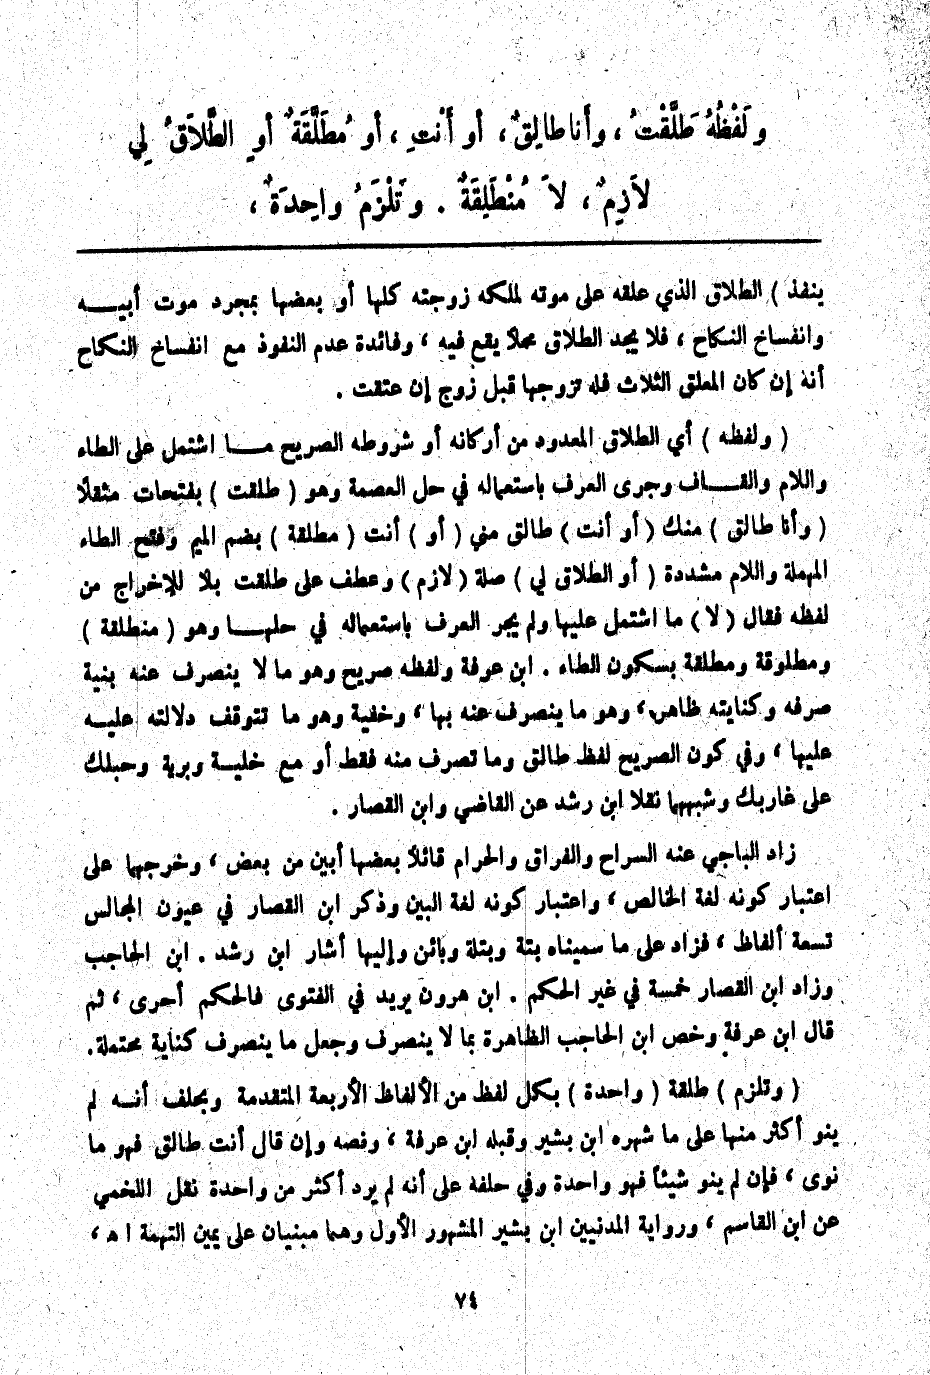 ولَفْظُهُ طَلَّقْتُ ، وأَنا طالِقٌ ، أو أَنْتِ ، أو مُطَلَّقَةٌ أو الطَّلَاقُ لِي
لاَزِمٌ ، لاَ مُنْطَلِقَةٌ . وتَلْزَمُ واحِدَةٌ ،
ينفذ ) الطلاق الذي علقه على موته لملكه زوجته كلها أو بعضها بمجرد موت أبيـــه
وانفساخ النكاح ، فلا يجد الطلاق محلاً يقع فيه ، وفائدة عدم النفوذ مع انفساخ النكاح
أنه إن كان المعلق الثلاث فله تزوجها قبل زوج إن عتقت .
( ولفظه ) أي الطلاق المعدود من أركانه أو شروطه الصريح مـــا اشتمل على الطاء
واللام والقـــاف وجرى العرف باستعماله في حل العصمة وهو ( طلقت ) بفتحات مثقلاً
( وأنا طالق ) منك ( أو أنت ) طالق مني ( أو ) أنت ( مطلقة ) بضم الميم وفتح الطاء
المهملة واللام مشددة ( أو الطلاق لي ) صلة ( لازم ) وعطف على طلقت بلا للإخراج من
لفظه فقال ( لا ) ما اشتمل عليها ولم يجر العرف باستعماله في حلهـــا وهو ( منطلقة )
ومطلوقة ومطلقة بسكون الطاء . ابن عرفة ولفظه صريح وهو ما لا ينصرف عنه بنية
صرفه وكنايته ظاهر ، وهو ما ينصرف عنه بها ، وخفية وهو ما تتوقف دلالته عليـــه
عليها ، وفي كون الصريح لفظ طالق وما تصرف منه فقط أو مع خليـة وبرية وحبلك
على غاربك وشبهها نقلا ابن رشد عن القاضي وابن القصار .
زاد الباجي عنه السراح والفراق والحرام قائلاً بعضها أبين من بعض ، وخرجها على
اعتبار كونه لغة الخالص ، واعتبار كونه لغة البين وذكر ابن القصار في عيون المجالس
تسعة ألفاظ ، فزاد على ما سميناه بتة وبتلة وبائن وإليها أشار ابن رشد . ابن الحاجب
وزاد ابن القصار خمسة في غير الحكم . ابن هرون يريد في الفتوى فالحكم أجرى ، ثم
قال ابن عرفة وخص ابن الحاجب الظاهرة بما لا ينصرف وجعل ما ينصرف كناية محتملة.
( وتلزم ) طلقة ( واحدة ) بكل لفظ من الألفاظ الأربعة المتقدمة ويحلف أنـــه لم
ينو أكثر منها على ما شهره ابن بشير وقبله ابن عرفة ، ونصه وإن قال أنت طالق فهو ما
نوى ، فإن لم ينو شيئاً فهو واحدة وفي حلفه على أنه لم يرد أكثر من واحدة نقل اللخمي
عن ابن القاسم ، ورواية المدنيين ابن بشير المشهور الأول وهما مبنيان على يمين التهمة ا ه ،
٧٤